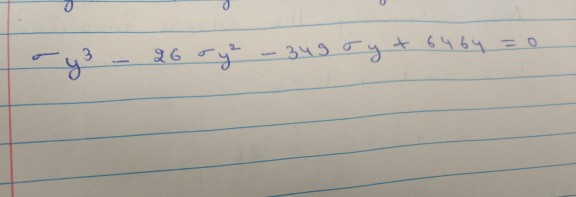 σy³ - 26 σy² - 349 σy + 6464 = 0